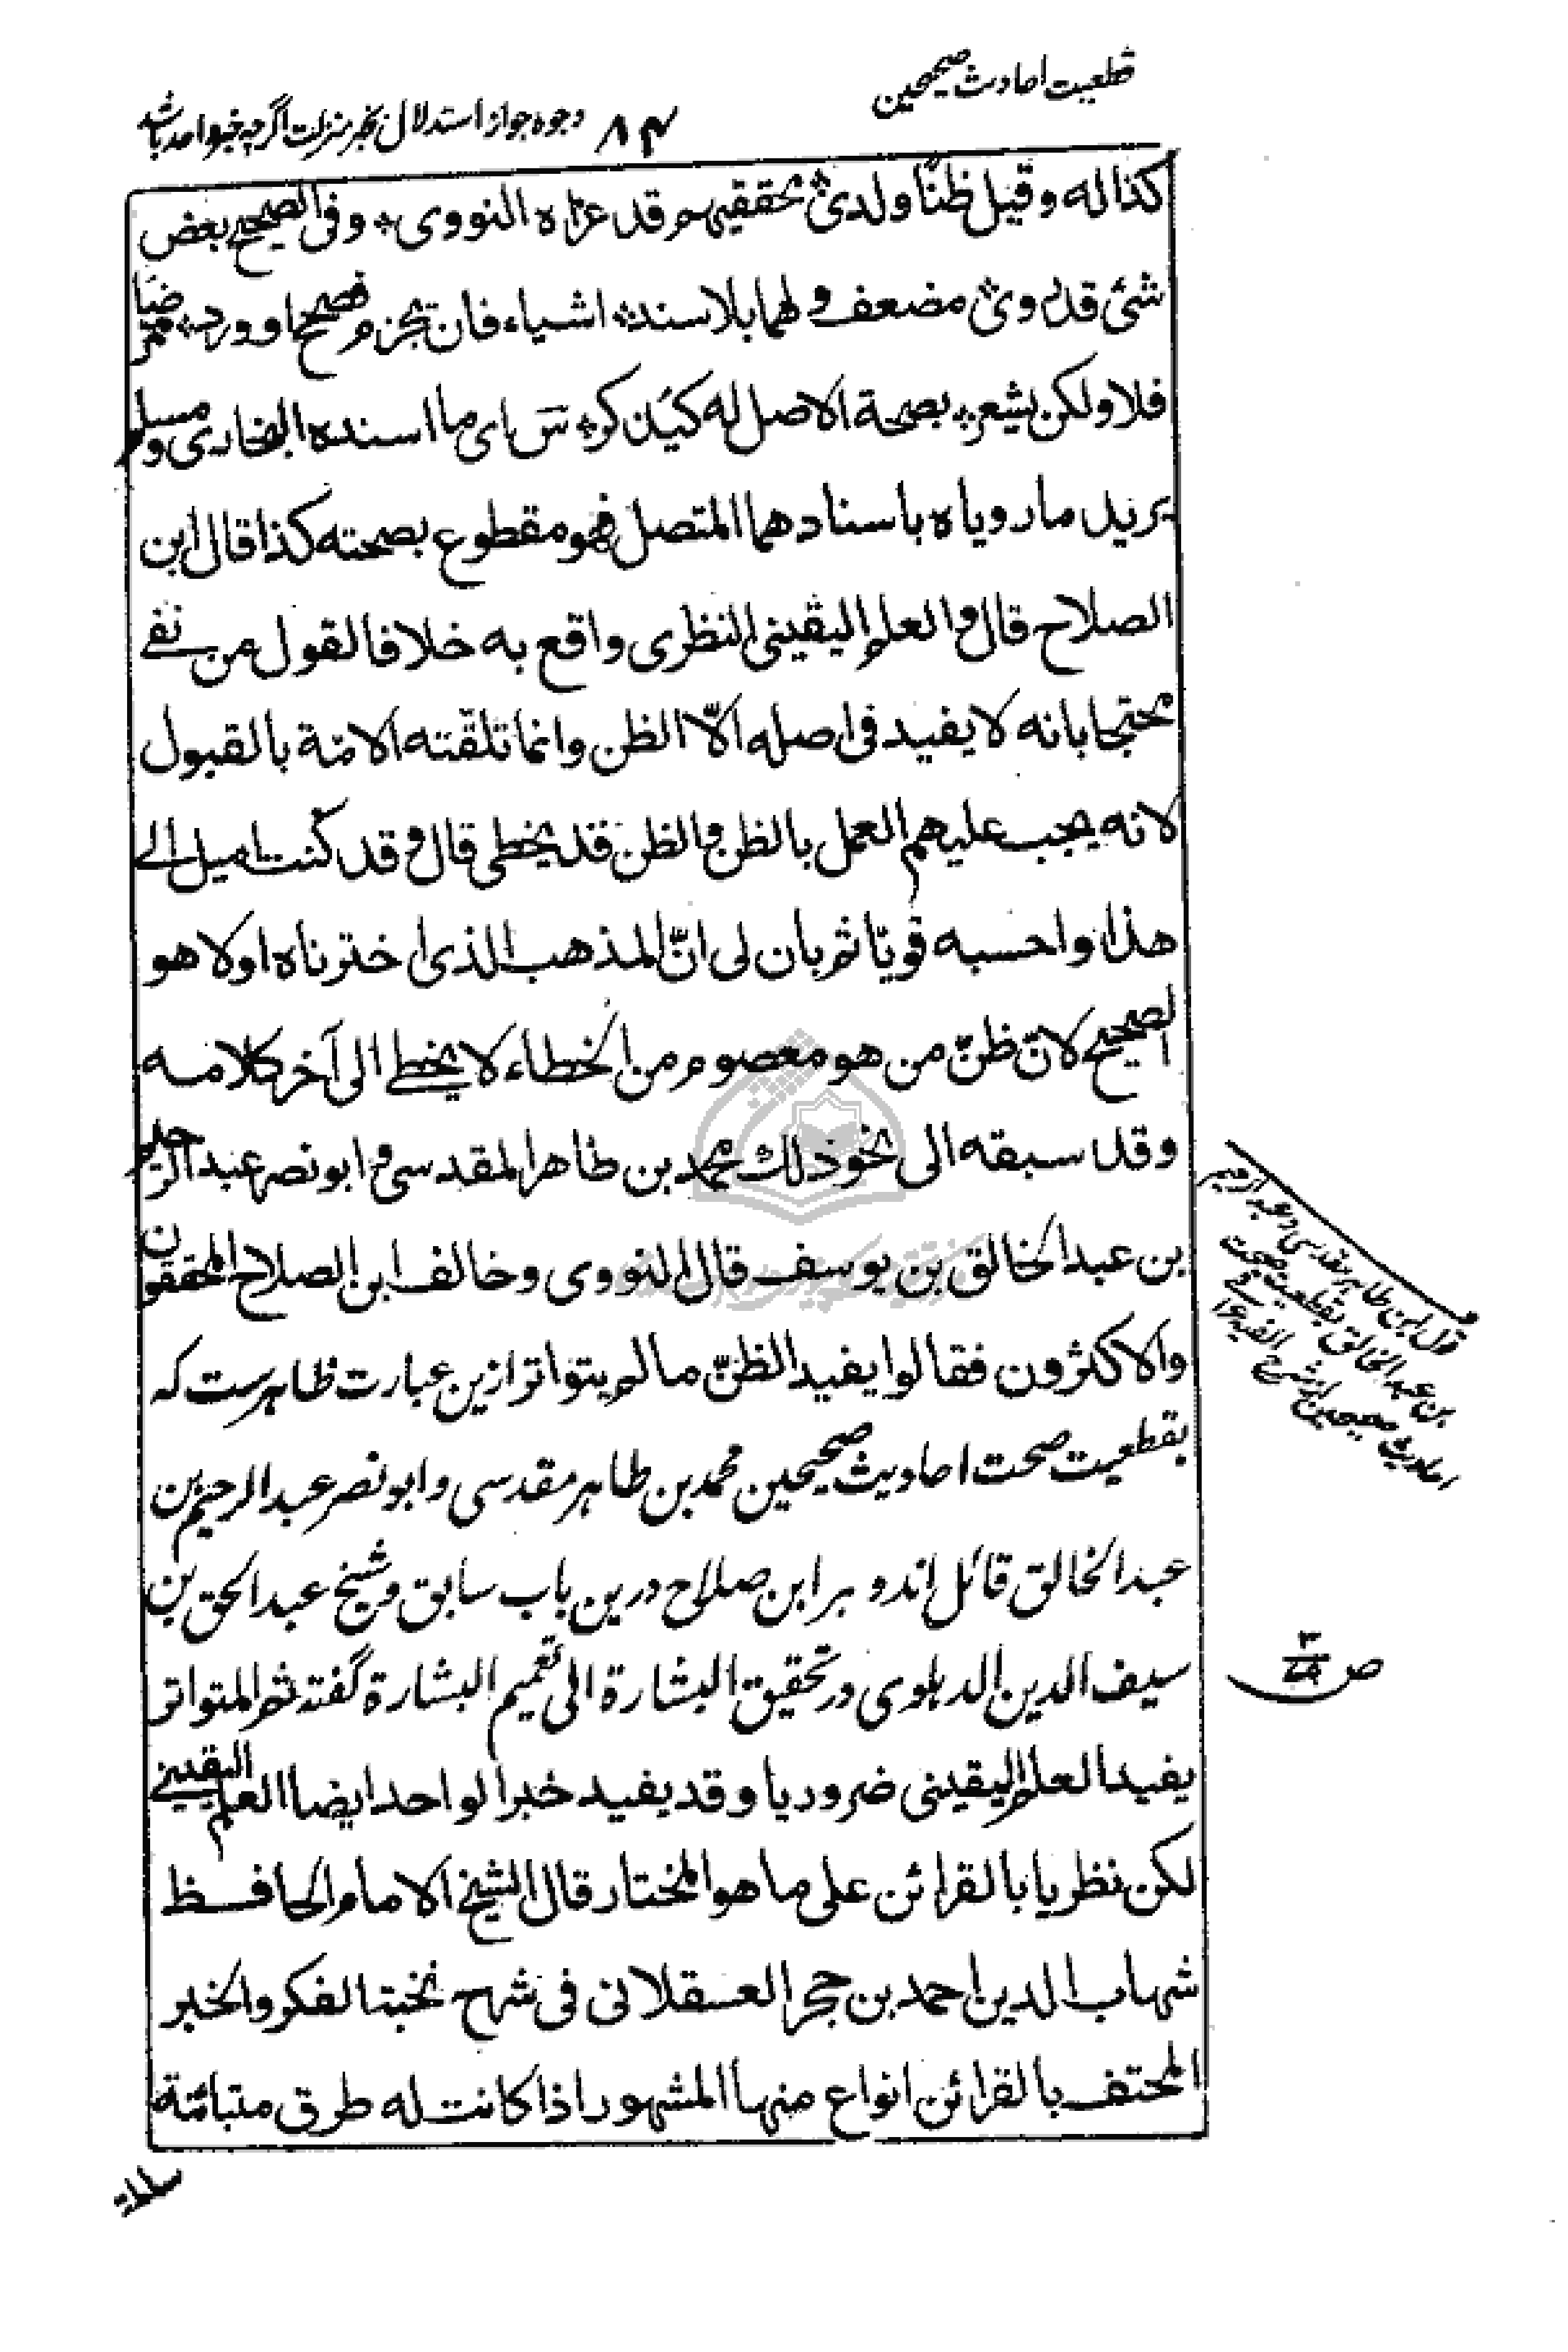 قطعیت احادیث صحیحین
۸۴
وجوه جواز استدلال بخبر منزلت اگرچه خبر واحد باشد
كذا له وقيل ظنا ولدى محققيهم قد عزاه النووى وفى الصحيح بعض
شئ قد روى مضعف ولهما بلا سند اشياء فان يجزم فصحح او ورد ممرضا
فلا ولكن يشعر بصحة الاصل له كيذكر ش اى ما اسنده البخارى ومسلم
يريد ما روياه باسنادهما المتصل فهو مقطوع بصحته كذا قال ابن
الصلاح قال والعلم اليقينى النظرى واقع به خلافا لقول من نفے
محتجا بانه لا يفيد فى اصله الّا الظن وانما تلقّته الامّة بالقبول
لانه يجب عليهم العمل بالظن والظن قد يخطى قال وقد كنت اميل الے
هذا واحسبه قويّا ثم بان لى انّ المذهب الذى اخترناه اولا هو
الصحيح لانّ ظنّ من هو معصوم من الخطاء لا يخطے الى آخر كلامه
وقد سبقه الى نحو ذلك محمد بن طاهر المقدسى وابو نصر عبد الرحيم
بن عبد الخالق بن يوسف قال النووى وخالف ابن الصلاح المحققون
والاكثرون فقالوا يفيد الظنّ ما لم يتواتر ازین عبارت ظاهرست که
بقطعیت صحت احادیث صحیحین محمد بن طاهر مقدسی وابو نصر عبد الرحیم بن
عبد الخالق قائل اند و بر ابن صلاح درین باب سابق وشیخ عبد الحق بن
سیف الدین الدہلوی در تحقیق البشارة الی تعمیم البشارة گفته ثم المتواتر
يفيد العلم اليقينى ضروريا وقد يفيد خبر الواحد ايضا العلم اليقينے
لكن نظريا بالقرائن على ما هو المختار قال الشيخ الامام الحافظ
شهاب الدين احمد بن حجر العسقلانى فى شرح نخبة الفكر والخبر
المحتف بالقرائن انواع منها المشهور اذا كانت له طرق متبائنة
قول ابن طاہر مقدسی و عبد الرحیم
بن عبد الخالق بقطعیت صحت
احادیث صحیحین از شرح الفیه
ص